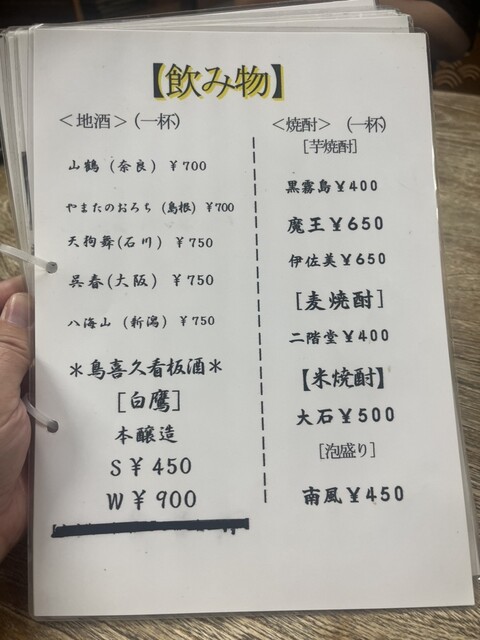 【飲み物】
＜地酒＞（一杯）
山鶴（奈良）￥700
やまたのおろち（島根）￥700
天狗舞(石川）￥750
呉春(大阪）￥750
八海山（新潟）￥750
＊鳥喜久看板酒＊
［白鷹］
本醸造
S￥450
W￥900
＜焼酎＞（一杯）
［芋焼酎］
黒霧島￥400
魔王￥650
伊佐美￥650
［麦焼酎］
二階堂￥400
【米焼酎】
大石￥500
［泡盛り］
南風￥450